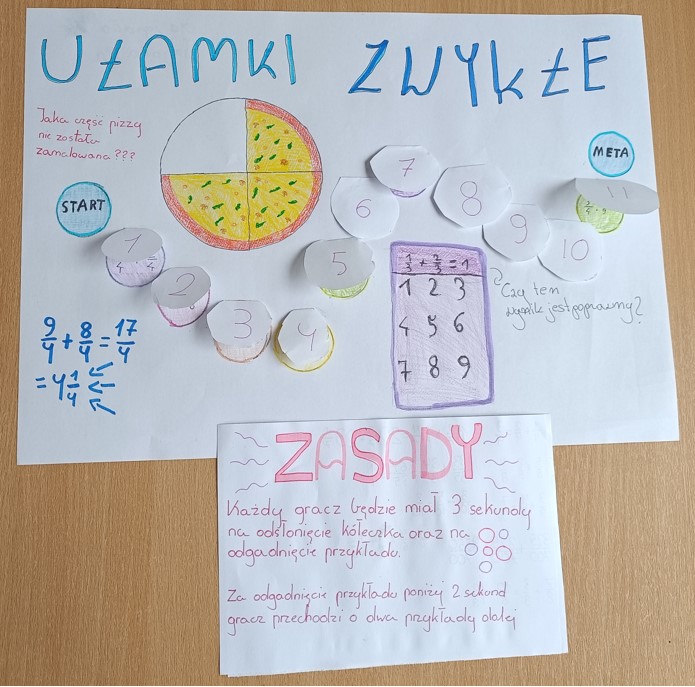 UŁAMKI ZWYKŁE
Jaka część pizzy
nie została
zamalowana ???
START
META
1
2
3
4
5
6
7
8
9
10
11
9/4 + 8/4 = 17/4
= 4 1/4
1/3 + 2/3 = 1
1 2 3
4 5 6
7 8 9
Czy ten
wynik jest poprawny?
ZASADY
Każdy gracz będzie miał 3 sekundy
na odsłonięcie kółeczka oraz na
odgadnięcie przykładu.
Za odgadnięcie przykładu poniżej 2 sekund
gracz przechodzi o dwa przykłady dalej